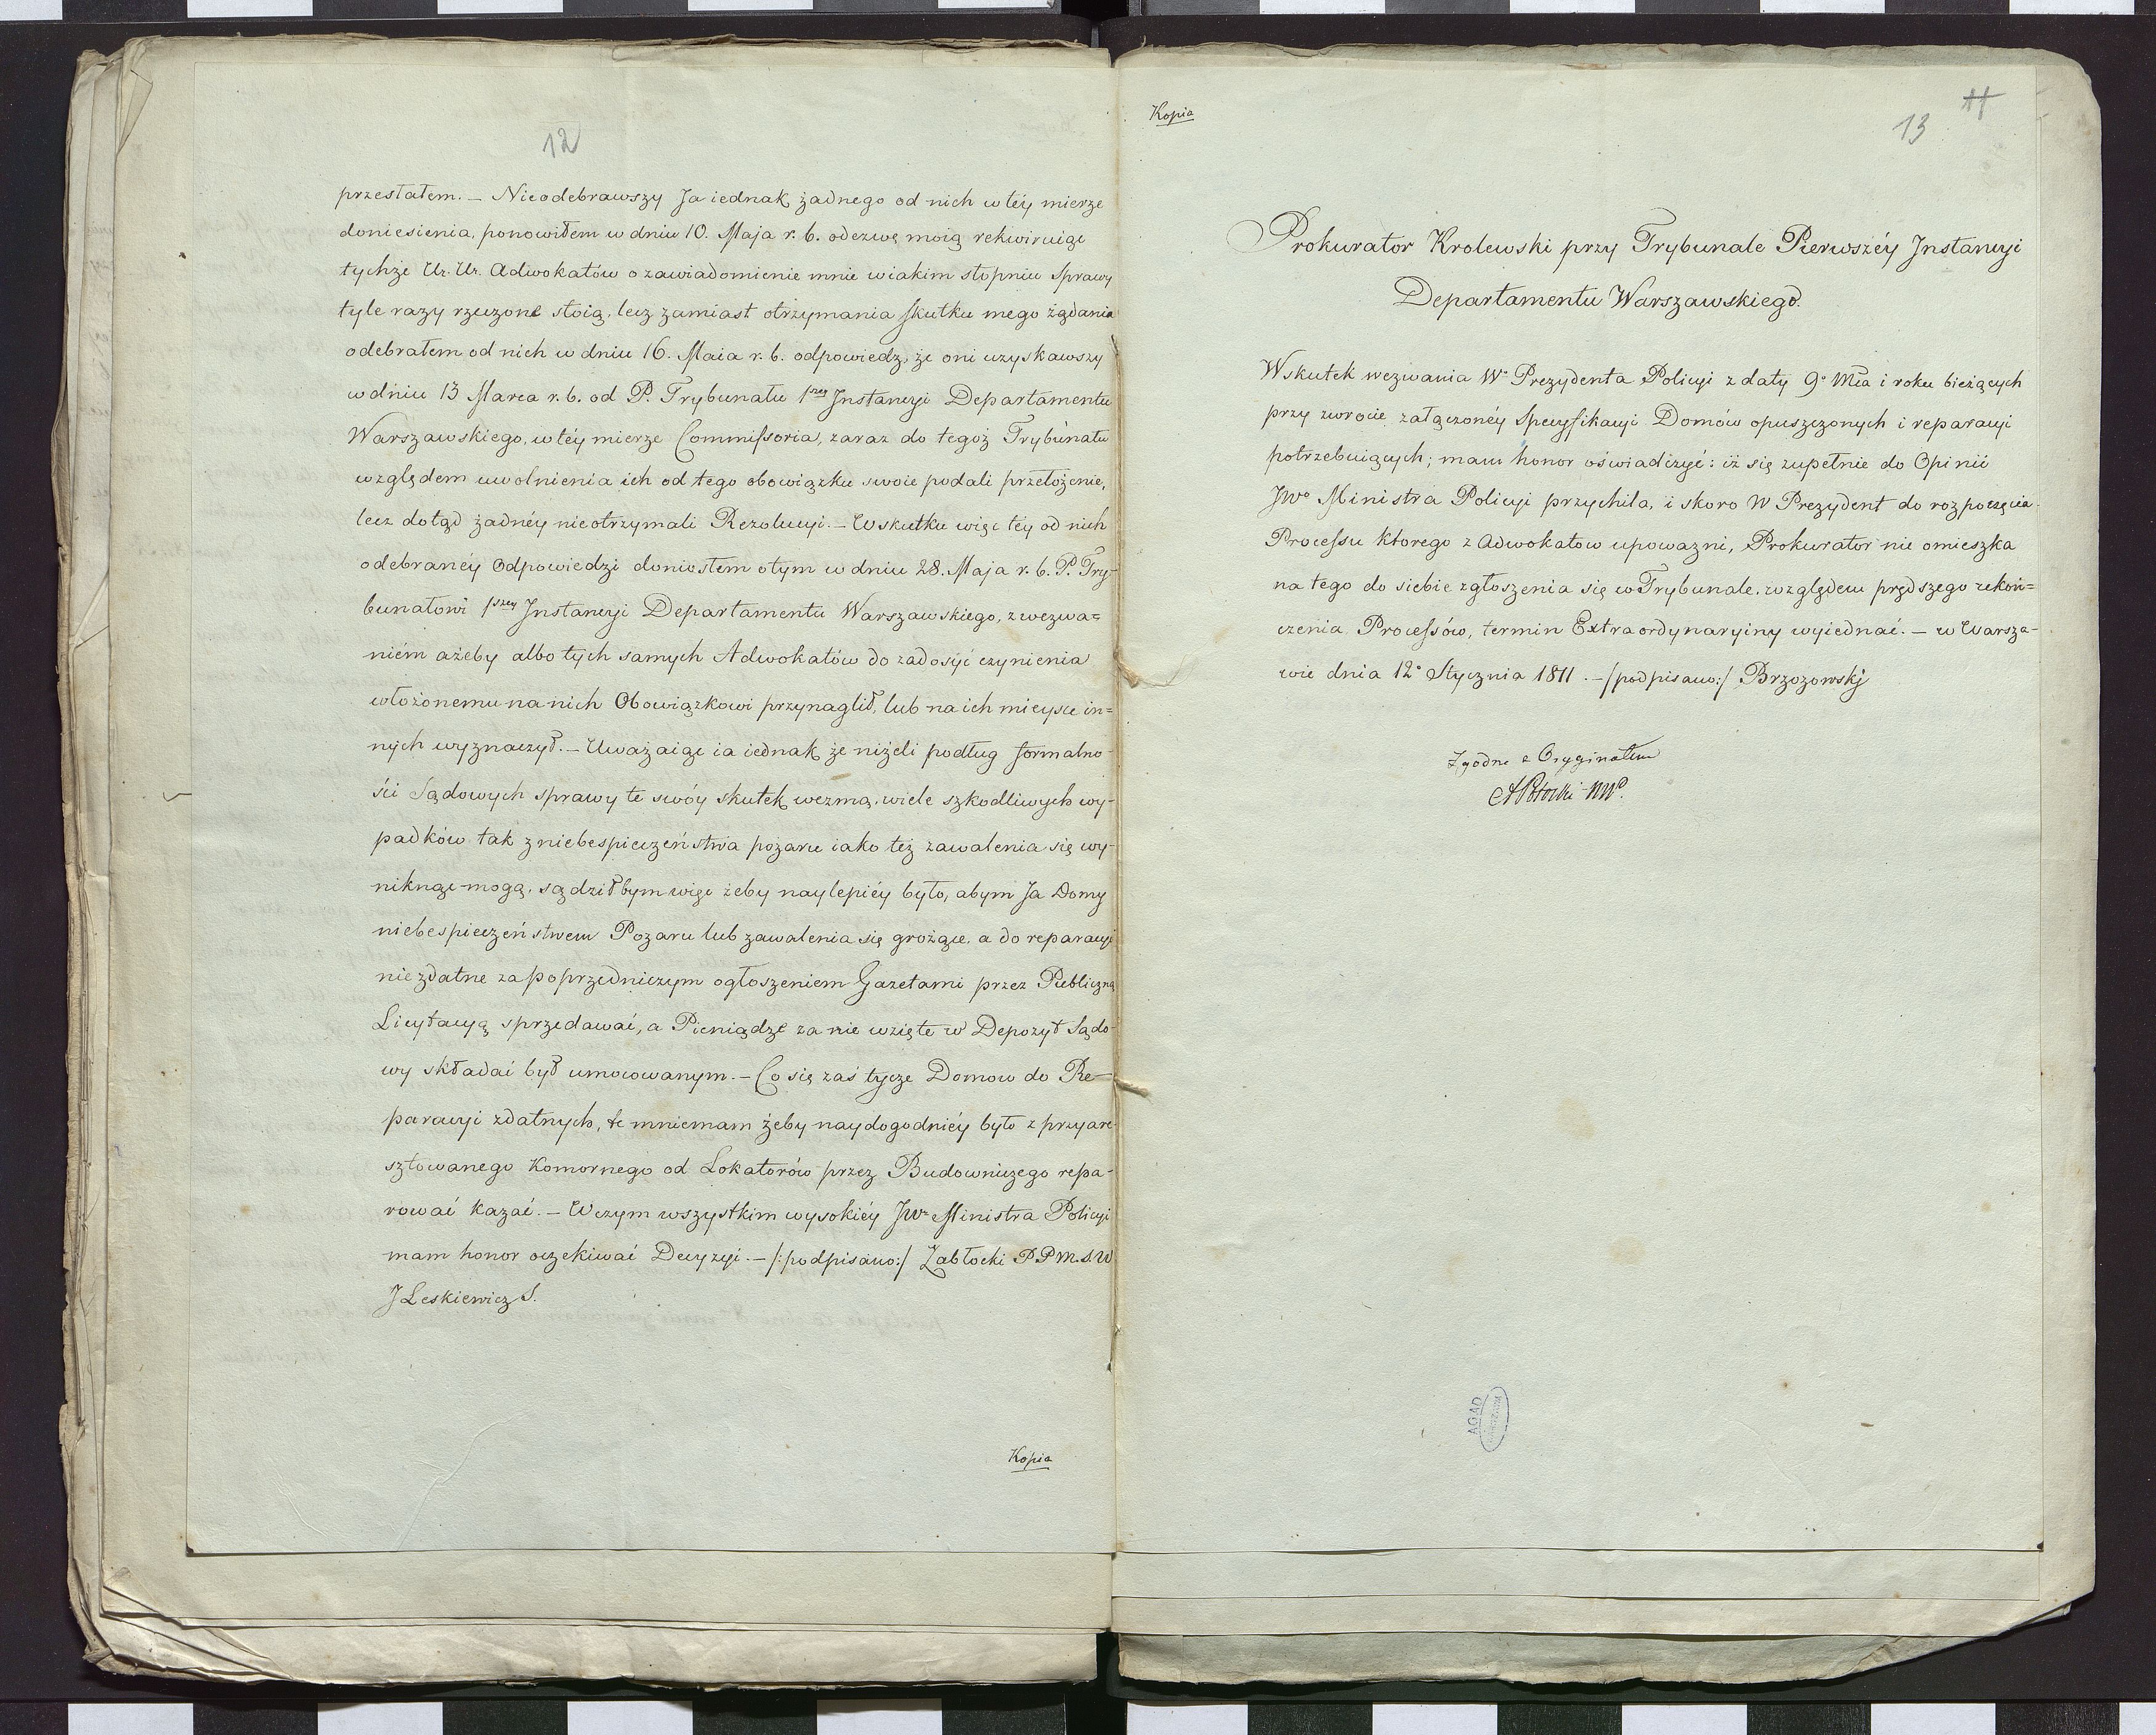 12
przesłałem. — Nieodebrawszy Ja iednak żadnego od nich w téy mierze
doniesienia, ponowiłem w dniu 10. Maja r. b. odezwę moią rekwiruiąc
tychże Ur. Ur. Adwokatów o zawiadomienie mnie w iakim stopniu Sprawy
tyle razy rzeczone stoią, lecz zamiast otrzymania skutku mego żądania
odebrałem od nich w dniu 16. Maia r. b. odpowiedz, że oni uzyskawszy
w dniu 13 Marca r. b. od P. Trybunału 1szey Instancyi Departamentu
Warszawskiego, w téy mierze Commissoria, zaraz do tegoż Trybunału
względem uwolnienia ich od tego obowiązku swoie podali przełożenie,
lecz dotąd żadnéy nieotrzymali Rezolucyi. — W skutku więc téy od nich
odebranéy Odpowiedzi doniosłem o tym w dniu 28. Maja r. b. P. Try-
bunałowi 1szey Instancyi Departamentu Warszawskiego, z wezwa=
niém ażeby albo tych samych Adwokatów do zadosyć czynienia
włożonemu na nich Obowiązkowi przynaglił, lub na ich mieysce in=
nych wyznaczył. — Uważaiąc ia iednak że niżeli podług formalno-
ści Sądowych sprawy te swóy skutek wezmą, wiele szkodliwych wy-
padków tak z niebespieczeństwa pożaru iako też zawalenia się wy-
niknąć mogą, sądziłbym więc żeby naylepiéy było, abym Ja Domy
niebespieczeństwem Pożaru lub zawalenia się grożące, a do reparacyi
niezdatne za poprzedniczym ogłoszeniem Gazetami przez Publiczną
Licytacyą sprzedawać, a Pieniądze za nie wzięte w Depozyt Sądo-
wy składać był umocowanym. — Co się zaś tycze Domow do Re-
paracyi zdatnych, te mniemam żeby naydogodniéy było z przyare-
sztowanego Komornego od Lokatorów przez Budowniczego repa-
rować kazać. — W czym wszystkim wysokiéy JWo Ministra Policyi
mam honor oczekiwać Decyzyi. — /:podpisano:/ Zabłocki P P M. S. W
J Leskiewicz S.
Kopia
Kopia
11
13
Prokurator Krolewski przy Trybunale Pierwszéy Instancyi
Departamentu Warszawskiego.
Wskutek wezwania Wo Prezydenta Policyi z daty 9o Mca i roku bieżących
przy zwrocie załączonéy Specyfikacyi Domów opuszczonych i reparacyi
potrzebuiących; mam honor oświadczyć: iż się zupełnie do Opinii
JWo Ministra Policyi przychila, i skoro W Prezydent do rozpoczęcia
Processu ktorego z Adwokatow upowazni, Prokurator nie omieszka
na tego do siebie zgłoszenia się w Trybunale, względem prędszego zekoń=
czenia Processów, termin Extraordynaryiny wyiednać. — w Warsza-
wie dnia 12o Stycznia 1811. — /podpisano:/ Brzozowski
Zgodno z Oryginałem
AGAD